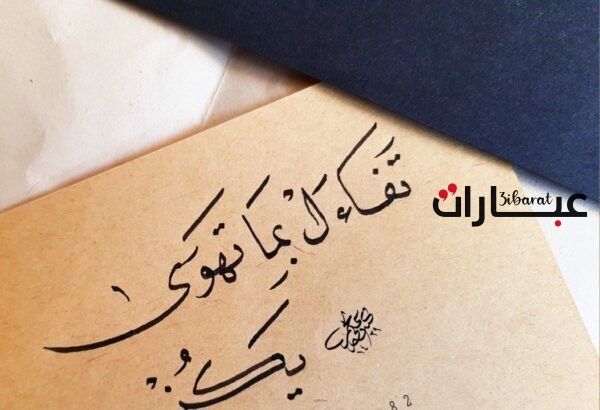 تَفَاءَلْ بِمَا تَهوى
يَكُنْ
عبارات
3ibarat
82